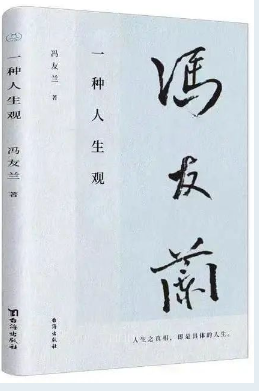 一种人生观
冯友兰 著
台海出版社
冯友兰 著
一种人生观
馮友蘭
人生之真相，即是具体的人生。